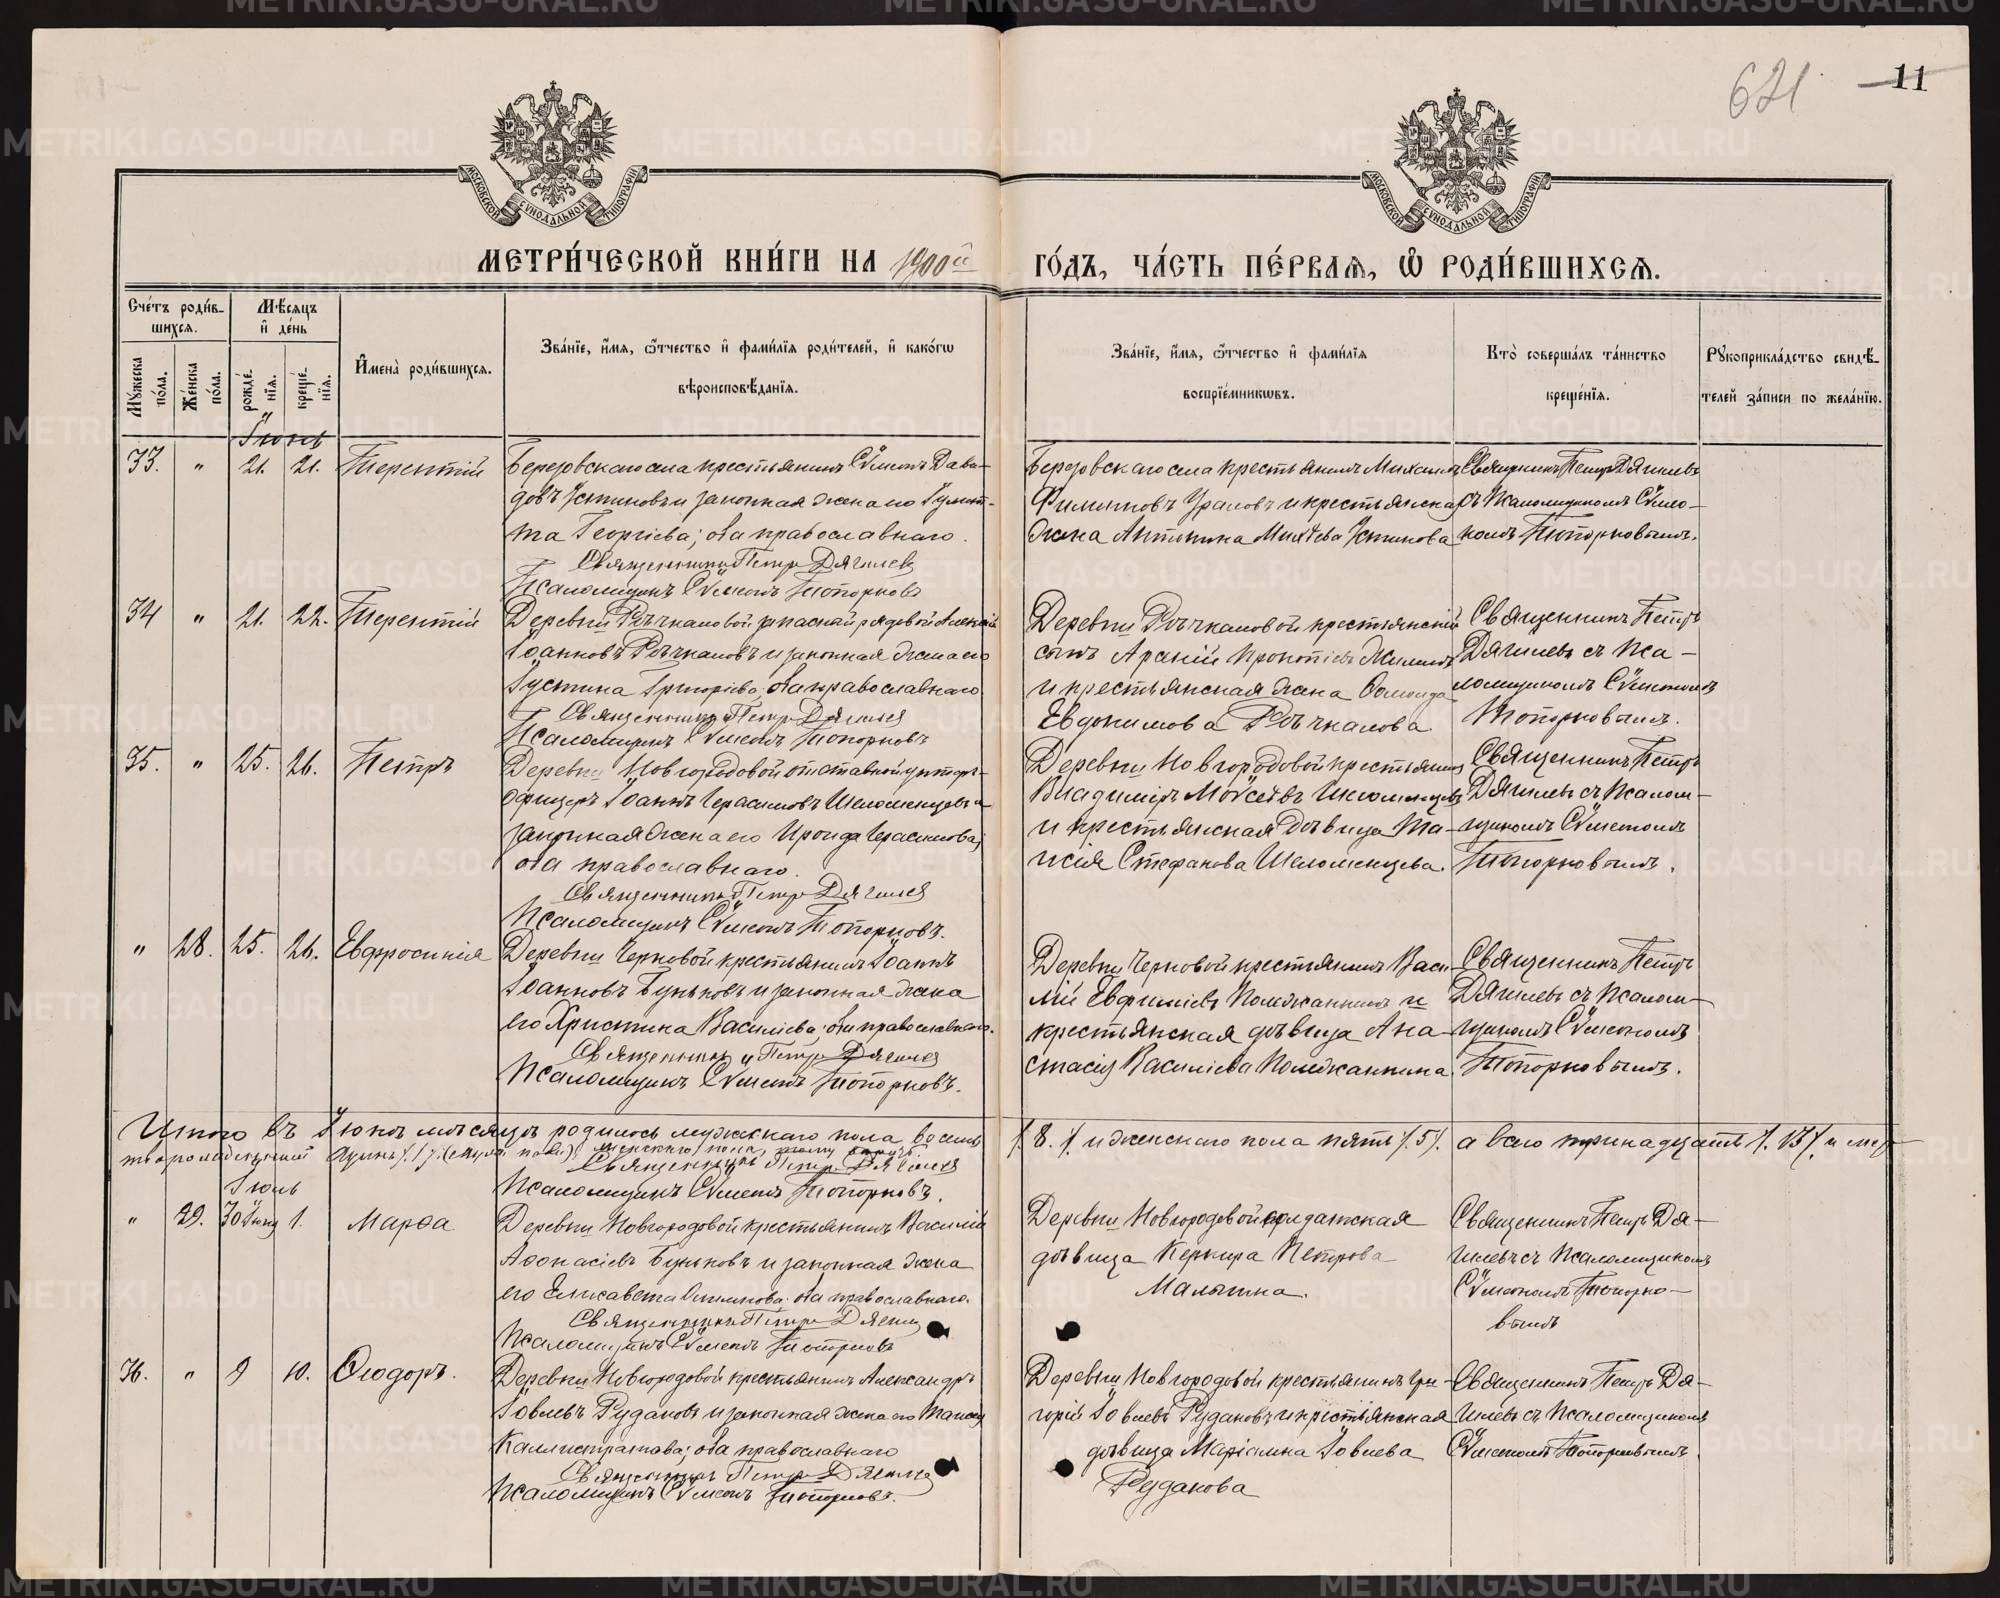 621
11
МОСКОВСКОЙ СУНОДАЛЬНОЙ ТИПОГРАФІИ
МОСКОВСКОЙ СУНОДАЛЬНОЙ ТИПОГРАФІИ
МЕТРИ́ЧЕСКОЙ КНИ́ГИ НА 1900й ГО́ДЪ, ЧА́СТЬ ПЕ́РВАѦ, Ѡ҆ РОДИ́ВШИХСѦ.
Сче́тъ роди́вшихсѧ.
Мѣ́сѧцъ и҆ де́нь
Мꙋ́жеска по́ла.
Же́нска по́ла.
рожде́нїѧ.
креще́нїѧ.
И҆мена̀ роди́вшихсѧ.
Зва́нїе, и҆́мѧ, ѻ҆́тчество и҆ фами́лїѧ роди́телей, и҆ како́гѡ вѣроисповѣ́данїѧ.
Зва́нїе, и҆́мѧ, ѻ҆́тчество и҆ фами́лїѧ воспрїе́мникѡвъ.
Кто̀ соверша́лъ та́инство креще́нїѧ.
Рꙋкоприкла́дство свидѣ́телей за́писи по жела́нїю.
Іюнь
33. " 21. 21. Терентій
Березовскаго села крестьянинъ Сѵмеонъ Дави-
довъ Устиновъ и законная жена его Іулит-
та Георгіева; оба православнаго.
Священникъ Петръ Дягилевъ
Псаломщикъ Сѵмеонъ Топорковъ
Березовскаго села крестьянинъ Михаилъ
Филиповъ Ураловъ и крестьянская
жена Антонина Михѣева Устинова
Священникъ Петръ Дягилевъ
съ Псаломщикомъ Сѵмео-
номъ Топорковымъ.
34 " 21. 22. Терентій
Деревни Рѣчкаловой запасной рядовой Алексій
Іоанновъ Рѣчкаловъ и законная жена его
Іустина Григорьева, оба православнаго
Священникъ Петръ Дягилевъ
Псаломщикъ Сѵмеонъ Топорковъ
Деревни Рѣчкаловой крестьянскій
сынъ
и крестьянская жена
Евдокимова Рѣчкалова
Священникъ Петръ
Дягилевъ съ Пса-
ломщикомъ Сѵмеономъ
Топорковымъ.
35. " 25. 26. Петръ
Деревни Новгородовой отставной унтеръ-
офицеръ Іоаннъ Герасимовъ Шеломенцевъ и
законная жена его Ираида Герасимова;
оба православнаго.
Священникъ Петръ Дягилевъ
Псаломщикъ Сѵмеонъ Топорковъ.
Деревни Новгородовой крестьянинъ
Владиміръ Моѵсеевъ Шеломенцевъ
и крестьянская дѣвица Та-
исія Стефанова Шеломенцева.
Священникъ Петръ
Дягилевъ съ Псалом-
щикомъ Сѵмеономъ
Топорковымъ.
" 28. 25. 26. Евфросинія
Деревни Черновой крестьянинъ Іоаннъ
Іоанновъ Буньковъ и законная жена
его Христина Василіева; оба православнаго.
Священникъ Петръ Дягилевъ
Псаломщикъ Сѵмеонъ Топорковъ.
Деревни Черновой крестьянинъ Васи-
лій Евфиміевъ Полежанкинъ и
крестьянская дѣвица Ана-
стасія Василіева Полежанкина
Священникъ Петръ
Дягилевъ съ Псалом-
щикомъ Сѵмеономъ
Топорковымъ.
Итого въ Іюнѣ мѣсяцѣ родилось мужскаго пола восемь /. 8. /. и женскаго пола пять /. 5/. а всего тринадцать /. 13/. и мер-
творожденный одинъ /. 1/.
Священникъ Петръ Дягилевъ
Псаломщикъ Сѵмеонъ Топорковъ.
Іюль
" 29. 30 Іюня 1. Марѳа
Деревни Новгородовой крестьянинъ Василій
Аѳонасіевъ Буньковъ и законная жена
его Елисавета; оба православнаго.
Священникъ Петръ Дягилевъ
Псаломщикъ Сѵмеонъ Топорковъ
Деревни Новгородовой солдатская
дѣвица Керкира Петрова
Малыгина.
Священникъ Петръ Дя-
гилевъ съ Псаломщикомъ
Сѵмеономъ Топорко-
вымъ
36. " 9 10. Ѳеодоръ.
Деревни Новгородовой крестьянинъ Александръ
Іовлевъ Рудаковъ и законная жена его Таисія
Каллистратова; оба православнаго
Священникъ Петръ Дягилевъ
Псаломщикъ Сѵмеонъ Топорковъ.
Деревни Новгородовой крестьянинъ Гри-
горій Іовлевъ Рудаковъ и крестьянская
дѣвица Маріамна Іовлева
Рудакова
Священникъ Петръ Дя-
гилевъ съ Псаломщикомъ
Сѵмеономъ Топорковымъ.
METRIKI.GASO-URAL.RU